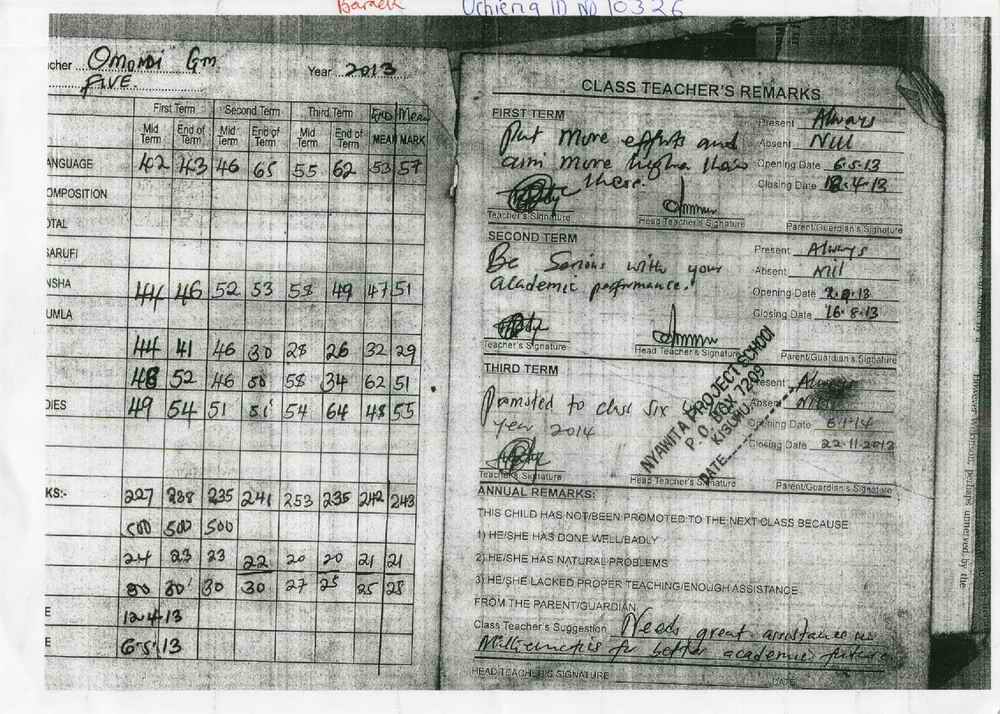 Barack Ochieng ID NO 10326
cher Omondi Gm
FIVE.
Year 2013
First Term Second Term Third Term END Mean
Mid Term End of Term Mid Term End of Term Mid Term End of Term MEAN MARK
ANGUAGE 42 43 46 65 55 62 53 57
OMPOSITION
OTAL
SARUFI
NSHA 44 46 52 53 58 49 47 51
UMLA
44 41 46 30 28 26 32 29
48 52 46 50 58 34 62 51
DIES 49 54 51 51 54 64 48 55
KS:- 227 238 235 241 253 235 242 243
500 500 500
24 23 23 22 20 20 21 21
30 30 30 27 25 25 28
E 12.4.13
E 6.5.13
CLASS TEACHER'S REMARKS
FIRST TERM
Present Always
Put more efforts and
Absent Nill
aim more higher than
Opening Date 6.5.13
these.
Closing Date 18.4.13
Teacher's Signature Head Teacher's Signature Parent/Guardian's Signature
SECOND TERM
Present Always
Be Serious with your
Absent Nil
academic performance.
Opening Date 2.9.13
Closing Date 16.8.13
Teacher's Signature Head Teacher's Signature Parent/Guardian's Signature
THIRD TERM
Present Always
Promoted to class six
Absent Nil
Year 2014
Opening Date 6.1.14
Closing Date 22.11.2013
NYAWITA PROJECT SCHOOL
P. O. BOX 7209
KISUMU
DATE
Teacher's Signature Head Teacher's Signature Parent/Guardian's Signature
ANNUAL REMARKS:
THIS CHILD HAS NOT/BEEN PROMOTED TO THE NEXT CLASS BECAUSE
1) HE/SHE HAS DONE WELL/BADLY
2) HE/SHE HAS NATURAL PROBLEMS
3) HE/SHE LACKED PROPER TEACHING/ENOUGH ASSISTANCE
FROM THE PARENT/GUARDIAN
Class Teacher's Suggestion Needs great assistance in
Mathematics for better academic future
HEAD TEACHER'S SIGNATURE DATE